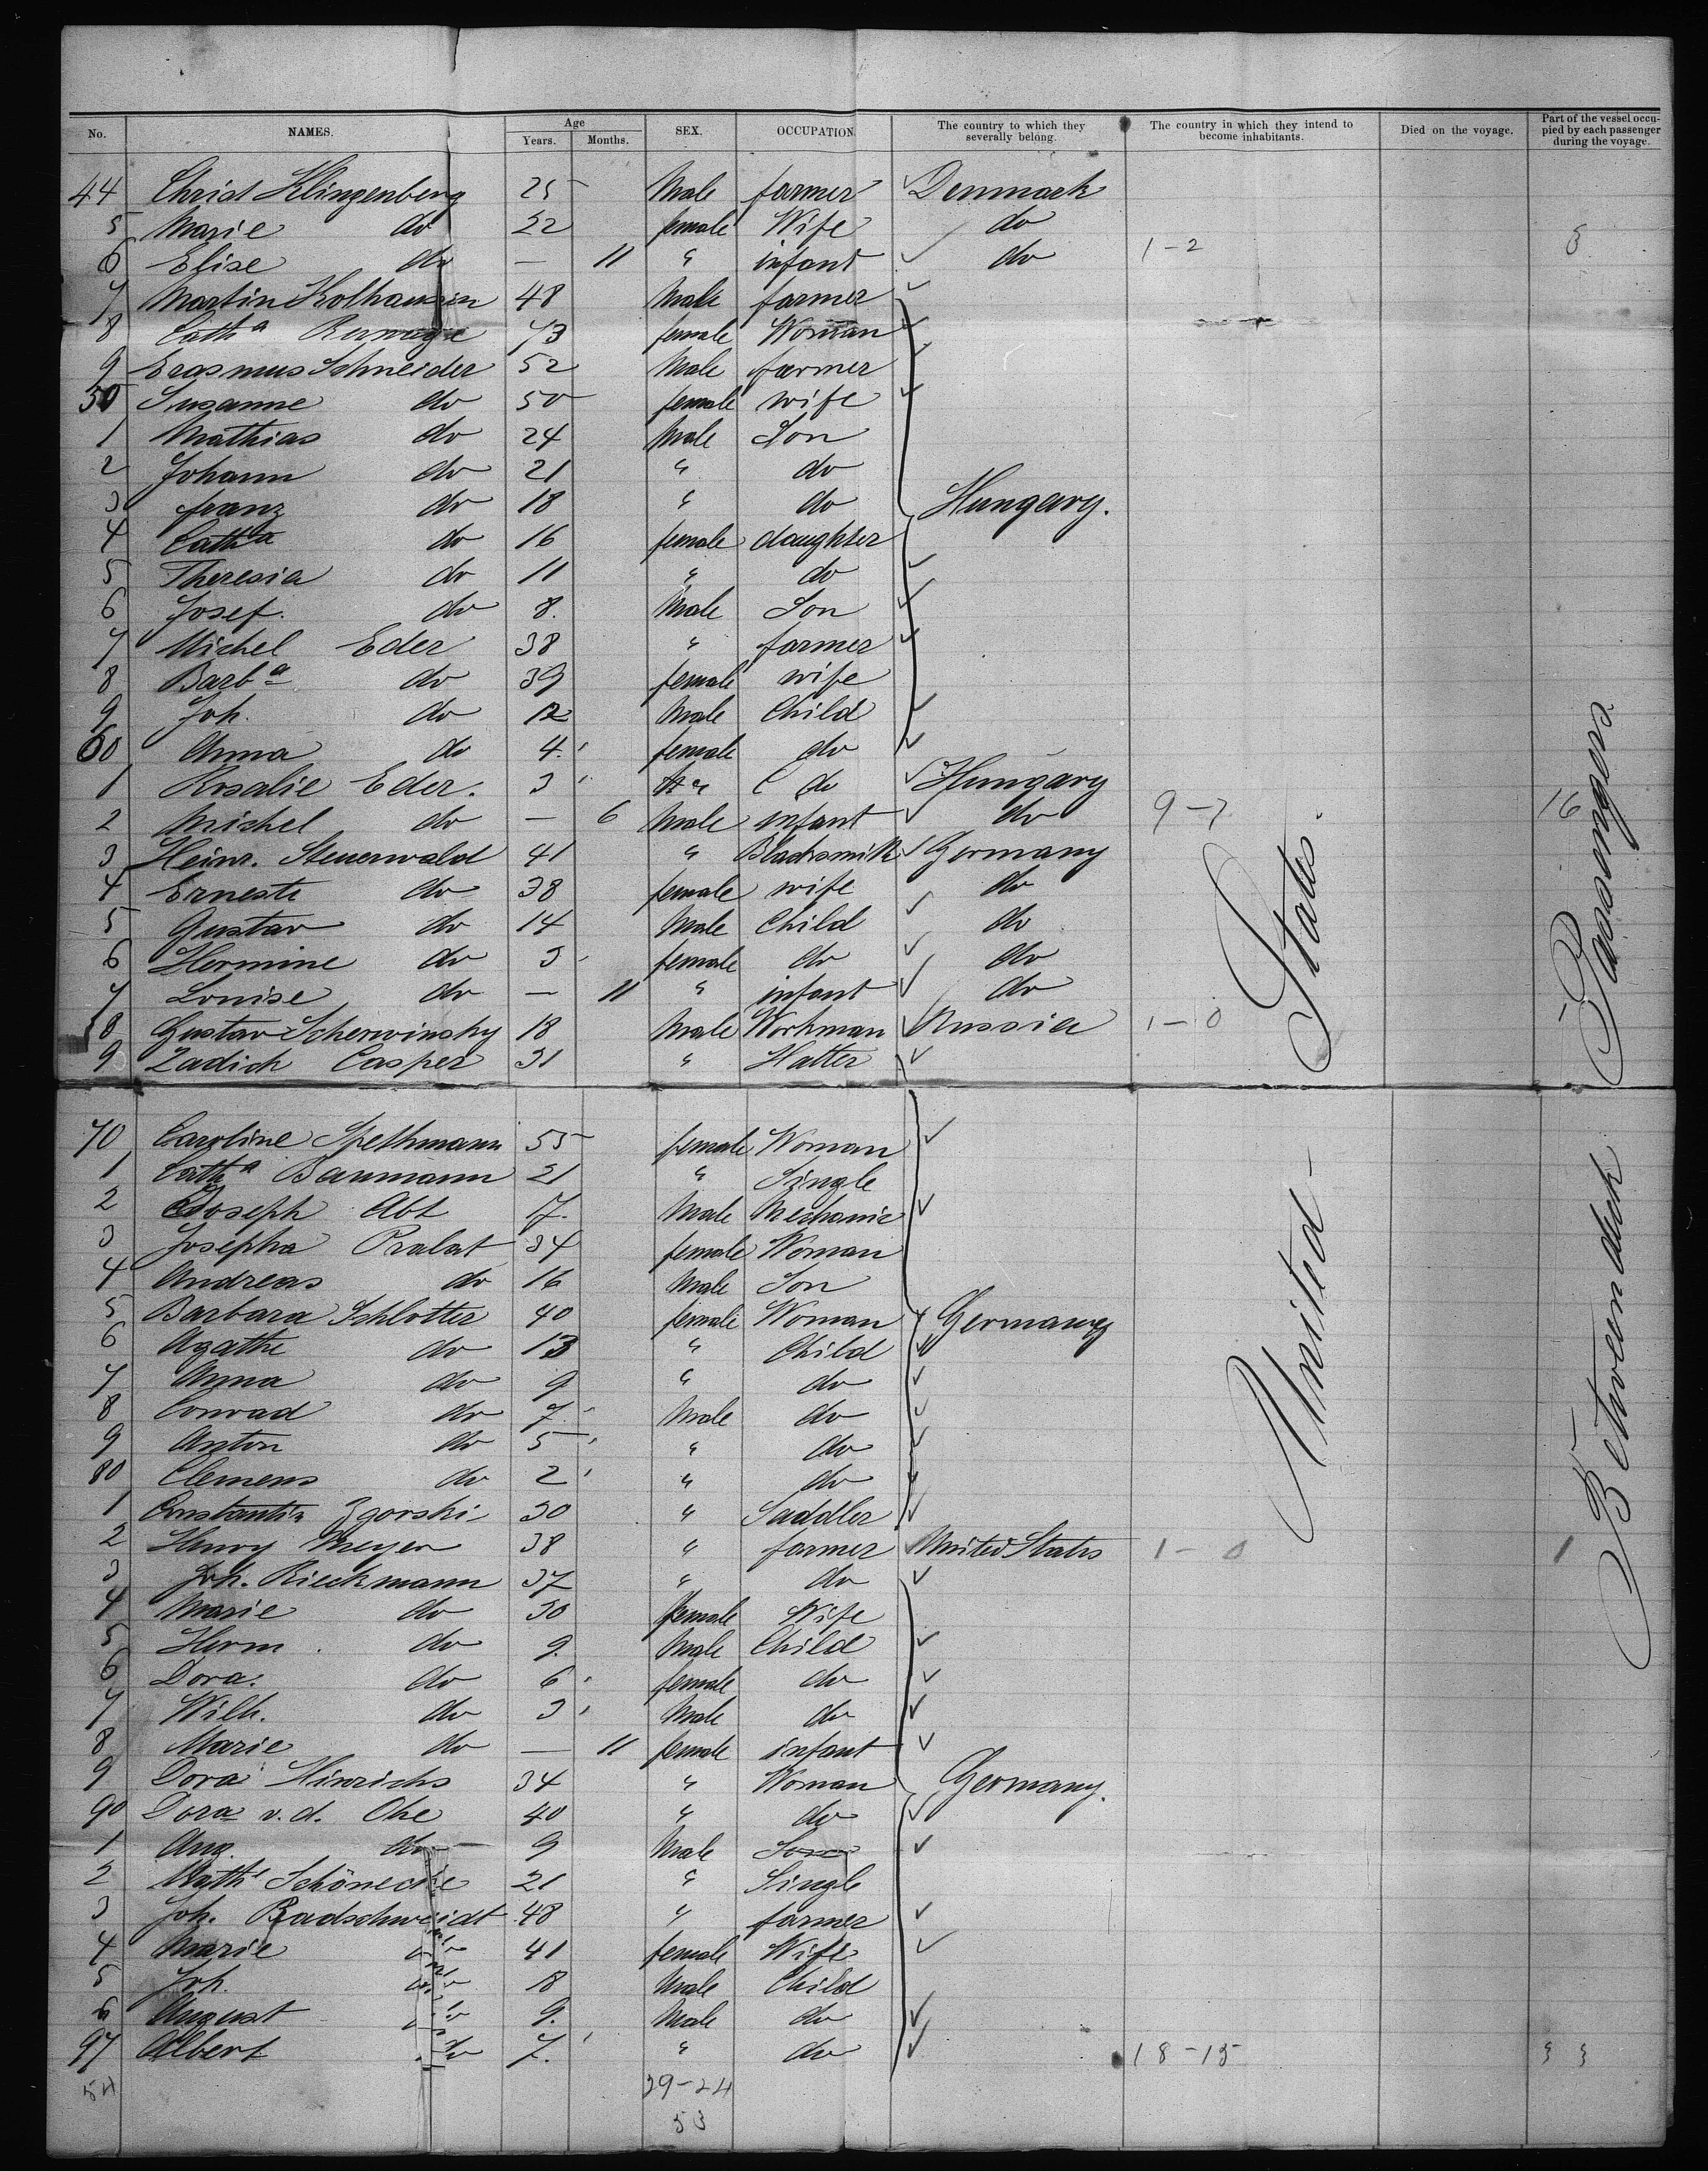 No. NAMES. Age Years. Months. SEX. OCCUPATION The country to which they severally belong. The country in which they intend to become inhabitants. Died on the voyage. Part of the vessel occupied by each passenger during the voyage.
44 Christ Klingenberg 25 Male farmer Denmark
5 Marie do 22 female Wife do
6 Elise do — 11 " infant do 1-2
7 Martin 48 Male farmer
8 Cath a 73 female Woman
9 Erasmus Schneider 52 Male farmer
50 Susanne do 50 female wife
1 Mathias do 24 Male Son
2 Johann do 21 " do
3 franz do 18 " do Hungary.
4 Cath a do 16 female daughter
5 Theresia do 11 " do
6 Josef. do 8. Male Son
7 Michel Eder 38 " farmer
8 Barb a do 39 female wife
9 Joh. do 12 Male Child
60 Anna do 4. female do
1 Rosalie Eder. 3 " do Hungary
2 Michel do — 6 Male infant do 9-7 16
3 Heinr. Steuerwald 41 " Blacksmith Germany
4 Erneste do 38 female wife do
5 Gustav do 14 Male Child do
6 Hermine do 3 female do do
7 Louise do — 11 " infant do
8 Gustav Scherwinsky 18 Male Workman Russia 1-0
9 Zadick Casper 31 " Hatter
70 Caroline Spethmann 55 female Woman
1 Cath a Baumann 21 " Single
2 Joseph Abt 17. Male Mechanic
3 Josepha Pralat 34 female Woman
4 Andreas do 16 Male Son
5 Barbara Schlotter 40 female Woman Germany
6 Agathe do 13 " Child
7 Anna do 9 " do
8 Conrad do 7. Male do
9 Anton do 5 " do
80 Clemens do 2 " do
1 Constantin Zgorski 30 " Saddler
2 Henry Meyer 38 " farmer United States 1-0 1
3 Joh. Rieckmann 37 " do
4 Marie do 30 female Wife
5 Herm. do 9. Male Child
6 Dora. do 6 female do
7 Wilh. do 3 Male do
8 Marie do — 11 female infant
9 Dora Hinrichs 34 " Woman Germany.
90 Dora v.d. Ohe 40 " do
1 Aug. do 9 Male Son
2 Math Schönecke 21 " Single
3 Joh. Radschweidt 48 " farmer
4 Marie do 41 female Wife
5 Joh. do 18 Male Child
6 August do 9. Male do
97 Albert do 7. " do 18-15 33
54 29-24
53
United States.
Betweendeck Passengers.